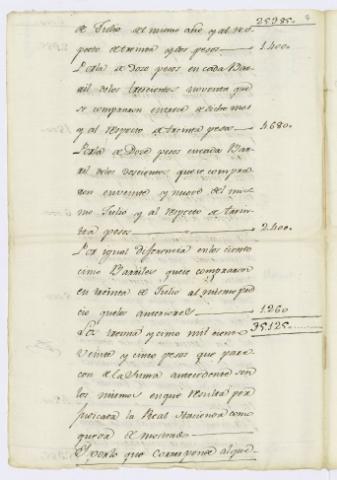 25385.
de Julio del mismo año y al res-
pecto de treinta y dos pesos 1.400.
Por la de Doze pesos en cada Bar-
ril de los trescientos noventa que
se compraron en trece de dicho mes
y al respecto de treinta pesos 4.680.
Por la de Doze pesos en cada Bar-
ril de los doscientos que se compra-
ron en veinte y nueve del mis-
mo Julio y al respecto de trein-
ta pesos 2.400.
Por igual diferencia en los ciento
cinco Barriles que se compraron
en treinta de Julio al mismo pre-
cio que los anteriores 1.260
Los treinta y cinco mil ciento 35.125.
veinte y cinco pesos que pare-
cen de la suma antecedente son
los mismos en que resulta per-
judicada la Real Hacienda como
queda demostrado
Y por lo que corresponde al que-